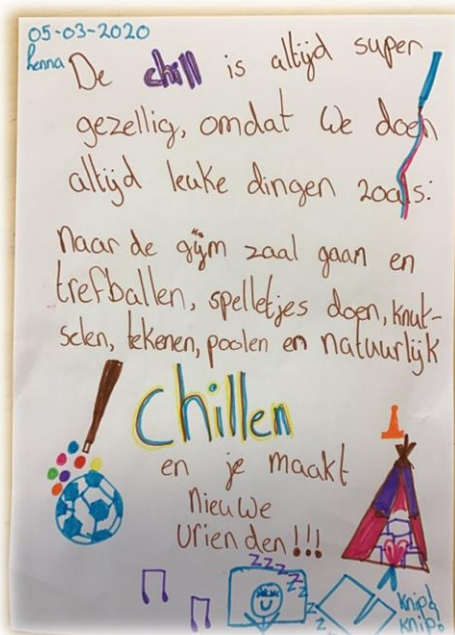 05-03-2020
De chill is altijd super
gezellig, omdat we doen
altijd leuke dingen zoals:
Naar de gijm zaal gaan en
trefballen, spelletjes doen, knut-
selen, tekenen, poolen en natuurlijk
Chillen
en je maakt
nieuwe
vrienden!!!
zzzzzzzz
knip!
knip!